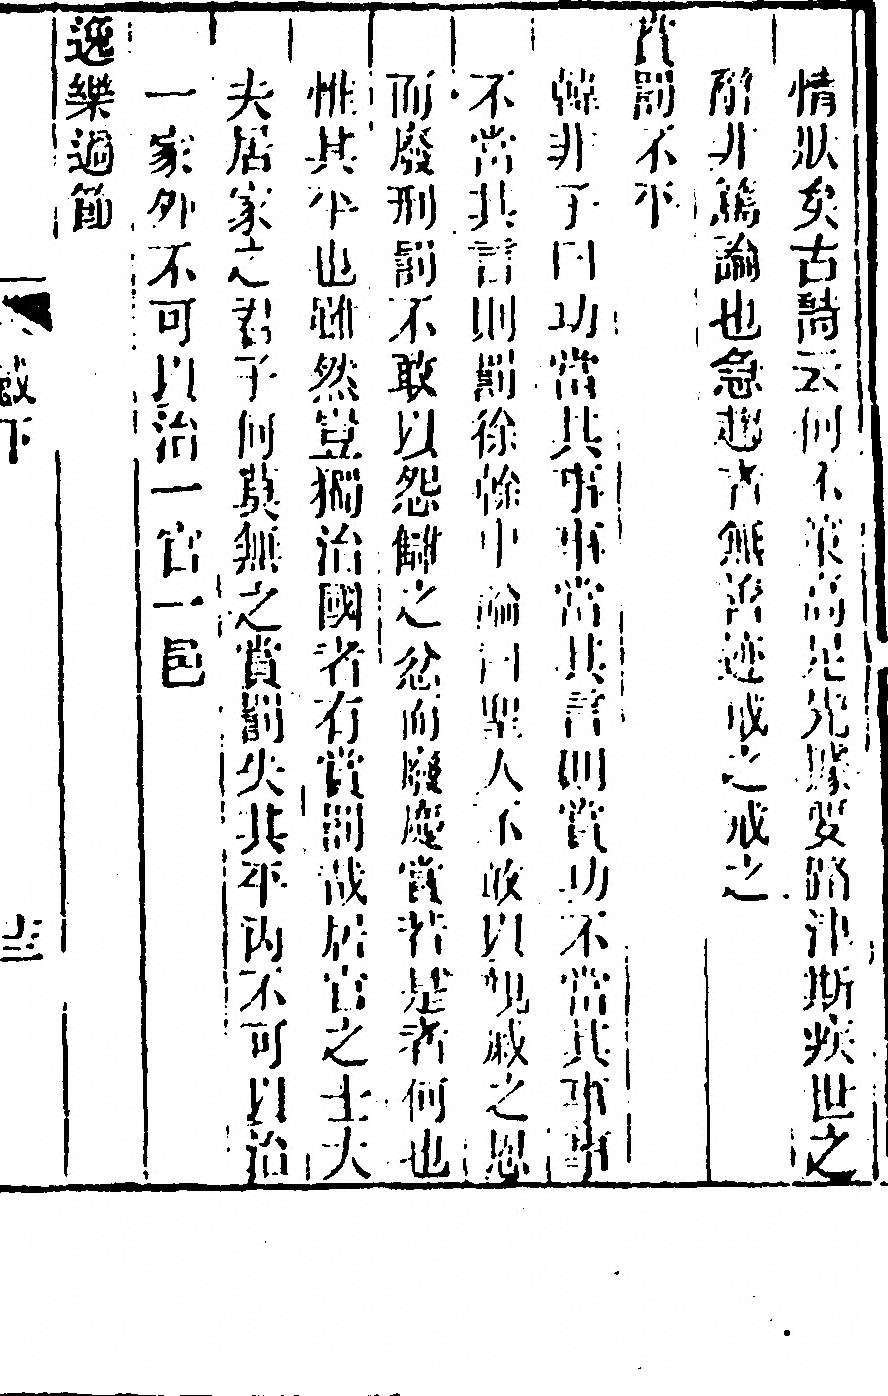 情狀矣古詩云何不策高足先據要路津斯疾世之
辭非篤論也急趨者無善迹戒之戒之
賞罰不平
韓非子曰功當其事事當其言則賞功不當其事事
不當其言則罰徐幹中論曰聖人不敢以親戚之恩
而廢刑罰不敢以怨讎之忿而廢慶賞若是者何也
惟其平也雖然豈獨治國者有賞罰哉居官之士大
夫居家之君子何莫無之賞罰失其平內不可以治
一家外不可以治一官一邑
逸樂過節
戒下
十三